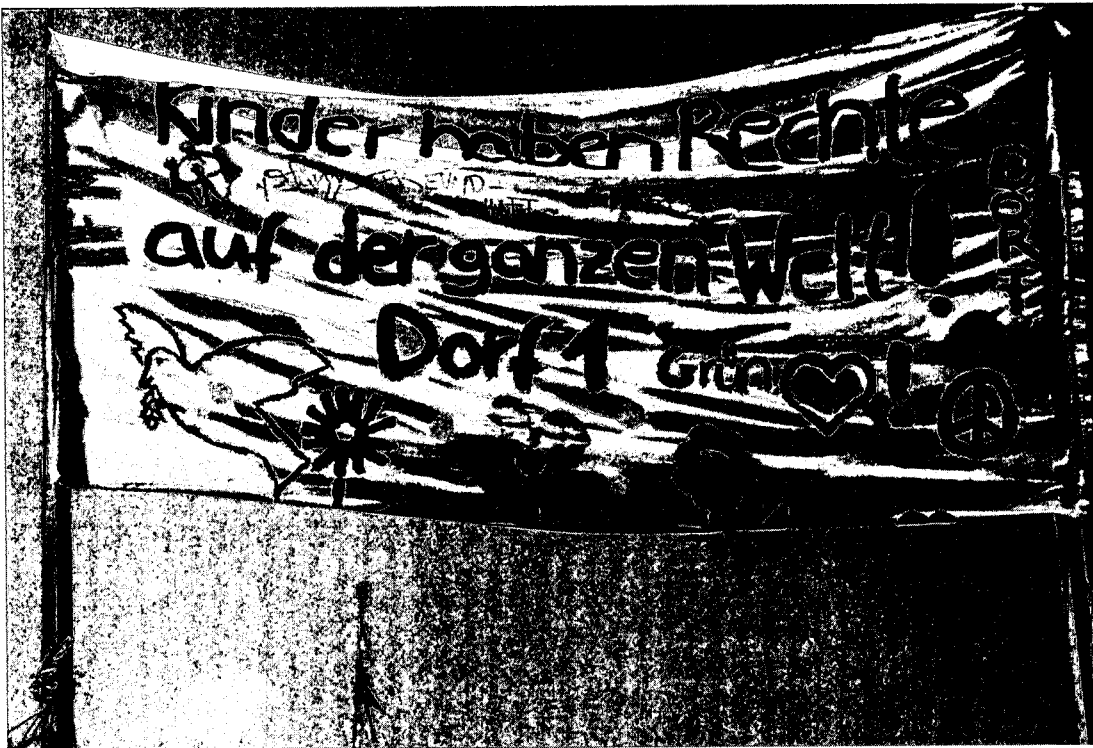 Kinder haben Rechte
auf der ganzen Welt!
DORF 1
Dorf 1 Grün